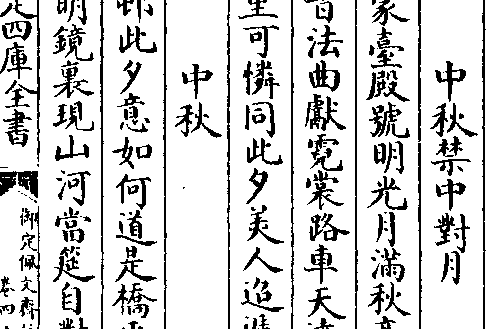 中秋禁中對月
家臺殿號明光月滿秋高
法曲獻霓裳路車天
里可憐同此夕美人迢遞
中秋
此夕意如何道是橋
明鏡裏現山河當筵自對
定四庫全書
御定佩文齋
卷四